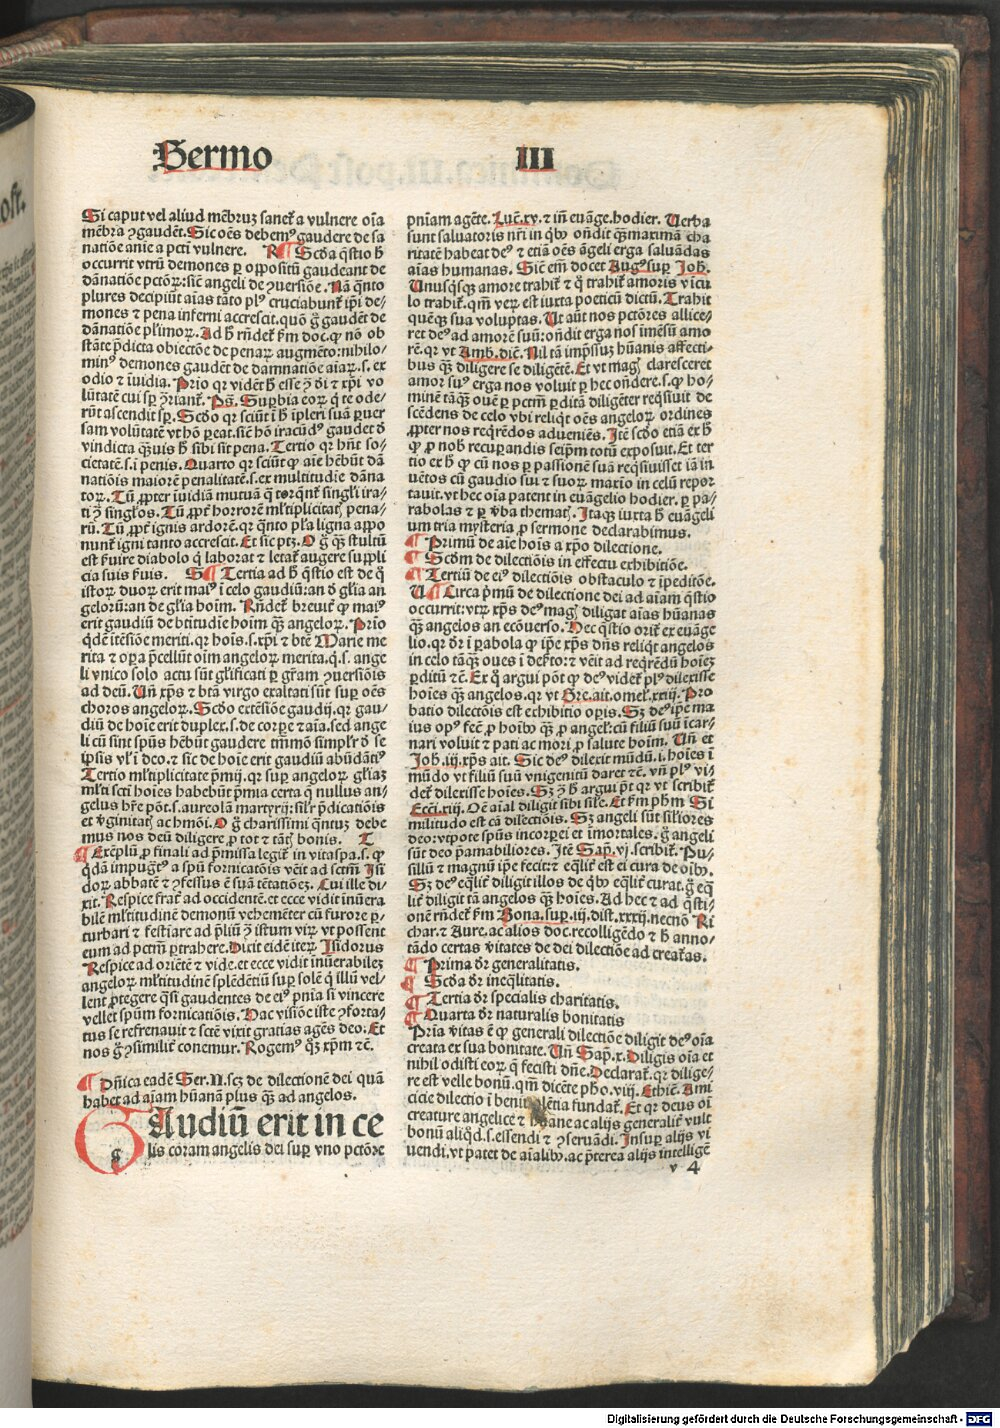 Sermo III
Si caput vel aliud mēbruꝫ sanet᷑ a vulnere oīa
mēbra ꝯgaudēt. Sic oēs debemꝰ gaudere de sa
natiōe anīe a pctī vulnere. R ¶ Scda q̄stio h̄
occurrit vtrū demones ꝑ oppositū gaudeant de
dānatiōe pctōꝝ: sic̄ angeli de ꝯuersiōe. Nā q̄nto
plures decipiūt aīas tāto plꝰ cruciabunt᷑ ip̄i de-
mones ⁊ pena inferni accrescit. quō g̊ gaudēt de
dānatiōe pl̄imoꝝ. Ad h̄ rn̄det᷑ ẜm doc. ꝙ nō ob
stāte p̄dicta obiectōe de penaꝝ augmēto: nihilo-
minꝰ demones gaudēt de damnatiōe aīaꝝ. s. ex
odio ⁊ īuidia. Prīo qꝛ vidēt h̄ esse ꝯ̄ dī ⁊ xp̄i vo
lūtatē cui sꝑ ꝯ̄riant᷑. Ps̄. Suꝑbia eoꝝ q̄ te ode-
rūt ascendit sꝑ. Scdo qꝛ sciūt ī h̄ īpleri suā ꝑuer
sam volūtatē vt hō ꝑeat. sic̄ hō iracūdꝰ gaudet d̄
vindicta q̄ꝫuis h̄ sibi sit pena. Tertio qꝛ hn̄t so-
cietatē. s. ī penis. Quarto qꝛ sciūt ꝙ aīe hēbūt dā
natiōis maiorē penalitatē. s. ex multitudīe dāna
toꝝ. Tū ꝓpter īuidiā mutuā q̄ torq̄nt᷑ singl̄i ira-
ti ꝯ̄ singl̄os. Tū ꝓpt᷑ horrorē ml̄tiplicitatꝭ pena-
rū. Tū ꝓpt᷑ ignis ardorē. qꝛ q̄nto pl̄a ligna appo
nunt᷑ igni tanto accrescit. Et sic ptꝫ. O g̊ q̄ꝫ stultū
est ẜuire diabolo q̇ laborat ⁊ letat᷑ augere suppli
cia suis ẜuis. S ¶ Tertia ad h̄ q̄stio est de q̊
istoꝝ duoꝝ erit maiꝰ ī celo gaudiū: an d̄ gl̄ia an
geloꝝ: an de gl̄ia hoīm. Rn̄det᷑ breuit᷑ ꝙ maiꝰ
erit gaudiū de btītudīe hoīm q̄ꝫ angeloꝝ. Prīo
q̇dē itēsiōe meriti. qꝛ hoīs. s. xp̄i ⁊ btē Marie me
rita ⁊ oꝑa p̄cellūt oīm angeloꝝ merita. q̇. s. ange
li vnico solo actu sūt gl̄ificati ꝑ gr̄am ꝯuersiōis
ad deū. Un̄ xp̄s ⁊ btā virgo exaltati sūt suꝑ oēs
choros angeloꝝ. Scdo extēsiōe gaudij. qꝛ gau-
diū de hoīe erit duplex. s. de corꝑe ⁊ aīa. sed ange
li cū sint spūs hēbūt gaudere tm̄mō simplr̄ d̄ se
ip̄sis vl̓ ī deo. ⁊ sic de hoīe erit gaudiū abūdātiꝰ
Tertio ml̄tiplicitate p̄mij. qꝛ suꝑ angeloꝝ gl̄iaꝫ
ml̄ti scti hoīes habebūt p̄mia certa q̄ nullus an-
gelus hr̄e pōt. s. aureolā martyrij: sil̄r p̄dicatiōis
et v̓ginitatꝭ ac hmōi. O g̊ charissimi q̄ntuꝫ debe
mus nos deū diligere ꝓ tot ⁊ tātꝭ bonis. T
¶ Exēplū ꝓ finali ad p̄missa legit᷑ in vitaspa. s. ꝙ
q̇dā impugnatꝰ a spū fornicatōis vēit ad sctm̄ Isi
doꝝ abbatē ⁊ ꝯfessus ē suā tētatiōeꝫ. Cui ille di-
xit. Respice frat᷑ ad occidentē. et ecce vidit inūera
bilem ml̄titudinē demonū vehemēter cū furore ꝑ-
turbari ⁊ festiare ad p̄liū ꝯ̄ istum viꝝ vt possent
eum ad pctm̄ ꝑtrahere. Dixit eidē iteꝝ Isidorus
Respice ad oriētē ⁊ vide. et ecce vidit inūerabileꝫ
angeloꝝ ml̄titudinē splēdētiū suꝑ solē q̇ illū vel-
lent ꝓtegere q̄si gaudentes de eiꝰ pn̄ia si vincere
vellet spūm fornicatiōis. Hac visiōe iste ꝯforta-
tus se refrenauit ⁊ sctē vixit gratias agēs deo. Et
nos g̊ ꝯ̄similit᷑ conemur. Rogemꝰ q̊ꝫ xp̄m ⁊c̄.
¶ Dn̄ica eadē Ser. II. scꝫ de dilectionē dei quā
habet ad aīam hūanā plus q̄ꝫ ad angelos.
GAudiū erit in ce
lis coram angelis dei suꝑ vno pctōre
pn̄iam agēte. Luc̄. xv. ⁊ in̄ euāge. hodier. Verba
sunt saluatoris nr̄i in q̇bꝰ on̄dit q̄ꝫmaximā cha
ritatē habeat deꝰ ⁊ etiā oēs āgeli erga saluādas
aīas humanas. Sic̄ em̄ docet Augꝰ suꝑ Joh̄.
Unusq̇sqꝫ amore trahit᷑ ⁊ q̇ trahit᷑ amoris vīcu
lo trahit᷑. qm̄ veꝝ est iuxta poeticū dictū. Trahit
quēqꝫ sua voluptas. Ut aūt nos pctōres allice-
ret deꝰ ad amorē suū: on̄dit erga nos īmēsū amo
rē. qꝛ vt Amb̄. dic̄. Nil tā imp̄ssuꝫ hūanis affecti-
bus q̄ꝫ diligere se diligētē. Et vt magꝭ claresceret
amor suꝰ erga nos voluit ꝑ hec on̄dere. s. ꝙ ho-
minē tāq̄ꝫ ouē ꝑ pctm̄ ꝑditā diligēter reqsiuit de
scēdens de celo vbi reliq̇t oēs angeloꝝ ordines
ꝓpter nos req̇rēdos adueniēs. Itē scdo etiā ex h̄
ꝙ ꝓ nob̄ recuꝑandis seip̄m totū exposuit. Et ter
tio ex h̄ ꝙ cū nos ꝑ passionē suā reqsiuisset iā in
uētos cū gaudio sui ⁊ suoꝝ maxīo in celū repor
tauit. vt hec oīa patent in euāgelio hodier. ꝑ pa-
rabolas ⁊ ꝑ v̓ba thematꝭ. Itaqꝫ iuxta h̄ euāgeli
um tria mysteria ꝓ sermone declarabimus.
¶ Primū de aīe hoīs a xp̄o dilectione.
¶ Scdm̄ de dilectiōis in effectu exhibitiōe.
¶ Tertiū de eiꝰ dilectiōis obstaculo ⁊ īpeditōe.
V ¶ Circa p̄mū de dilectione dei ad aīam q̄stio
occurrit: vtꝝ xp̄s deꝰ magꝭ diligat aīas hūanas
q̄ꝫ angelos an ecōuerso. Hec q̄stio orit᷑ ex euāge
lio. qꝛ dr̄ ī ꝑabola ꝙ ip̄e xp̄s dn̄s reliq̇t angelos
in celo tāq̄ꝫ oues ī deẜto: ⁊ vēit ad req̇rēdū hoīeꝫ
ꝑditū ⁊c̄. Ex q̊ argui pōt ꝙ deꝰ videt᷑ plꝰ dilexisse
hoīes q̄ꝫ angelos. qꝛ vt Gre. ait. omel̓. xxiij. Pro
batio dilectōis est exhibitio oꝑis. Sꝫ deꝰ ip̄e ma
ius opꝰ fec̄ ꝓ hoībꝰ q̄ꝫ ꝓ angel̓: cū filiū suū īcar-
nari voluit ⁊ pati ac mori ꝓ salute hoīm. Un̄ et
Joh̄. iij. xp̄s ait. Sic deꝰ dilexit mūdū. i. hoīes ī
mūdo vt filiū suū vnigenitū daret ⁊c̄. vn̄ plꝰ vi-
det᷑ dilexisse hoīes. Sꝫ ꝯ̄ h̄ argui pōt qꝛ vt scribit᷑
Ecci. xiij. Oē aīal diligit sibi sil̄e. Et ẜm ph̄m Si
militudo est cā dilectiōis. Sꝫ angeli sūt sil̄iores
deo: vtpote spūs incorꝑei et imortales. g̊ angeli
sūt deo p̄amabiliores. Itē Sap. vj. scribit᷑. Pu-
sillū ⁊ magnū ip̄e fecit: ⁊ eq̄lit᷑ est ei cura de oībꝰ.
Sꝫ deꝰ eq̄lit᷑ diligit illos de q̇bꝰ eq̄lit᷑ curat. g̊ eq̄
lit᷑ diligit tā angelos q̄ꝫ hoīes. Ad hec ⁊ ad q̄sti-
onē rn̄det᷑ ẜm Bona. suꝑ. iij. dist. xxxij. necnō Ri
char. ⁊ Aure. ac alios doc. recolligēdo ⁊ h̄ anno-
tādo certas v̓itates de dei dilectiōe ad creat᷑as.
¶ Prima dr̄ generalitatis.
¶ Scda dr̄ ineq̄litatis.
¶ Tertia dr̄ specialis charitatis.
¶ Quarta dr̄ naturalis bonitatis
Prīa v̓itas ē ꝙ generali dilectiōe diligit deꝰ oīa
creata ex sua bonitate. Un̄ Sap. x. Diligis oīa et
nihil odisti eoꝝ q̄ fecisti dn̄e. Declarat᷑. qꝛ dilige-
re est velle bonū. qm̄ dicēte ph̄o. viij. Ethic̄. Ami
cicie dilectio ī beniuolētia fundat᷑. Et qꝛ deus oī
creature angelice ⁊ hūane ac alijs generalit᷑ vult
bonū aliq̇d. s. essendi ⁊ ꝯseruādi. Insuꝑ alijs vi
uendi. vt patet de aīalibꝰ. ac p̄terea alijs intelligē
v 4
Digitalisierung gefördert durch die Deutsche Forschungsgemeinschaft - DFG